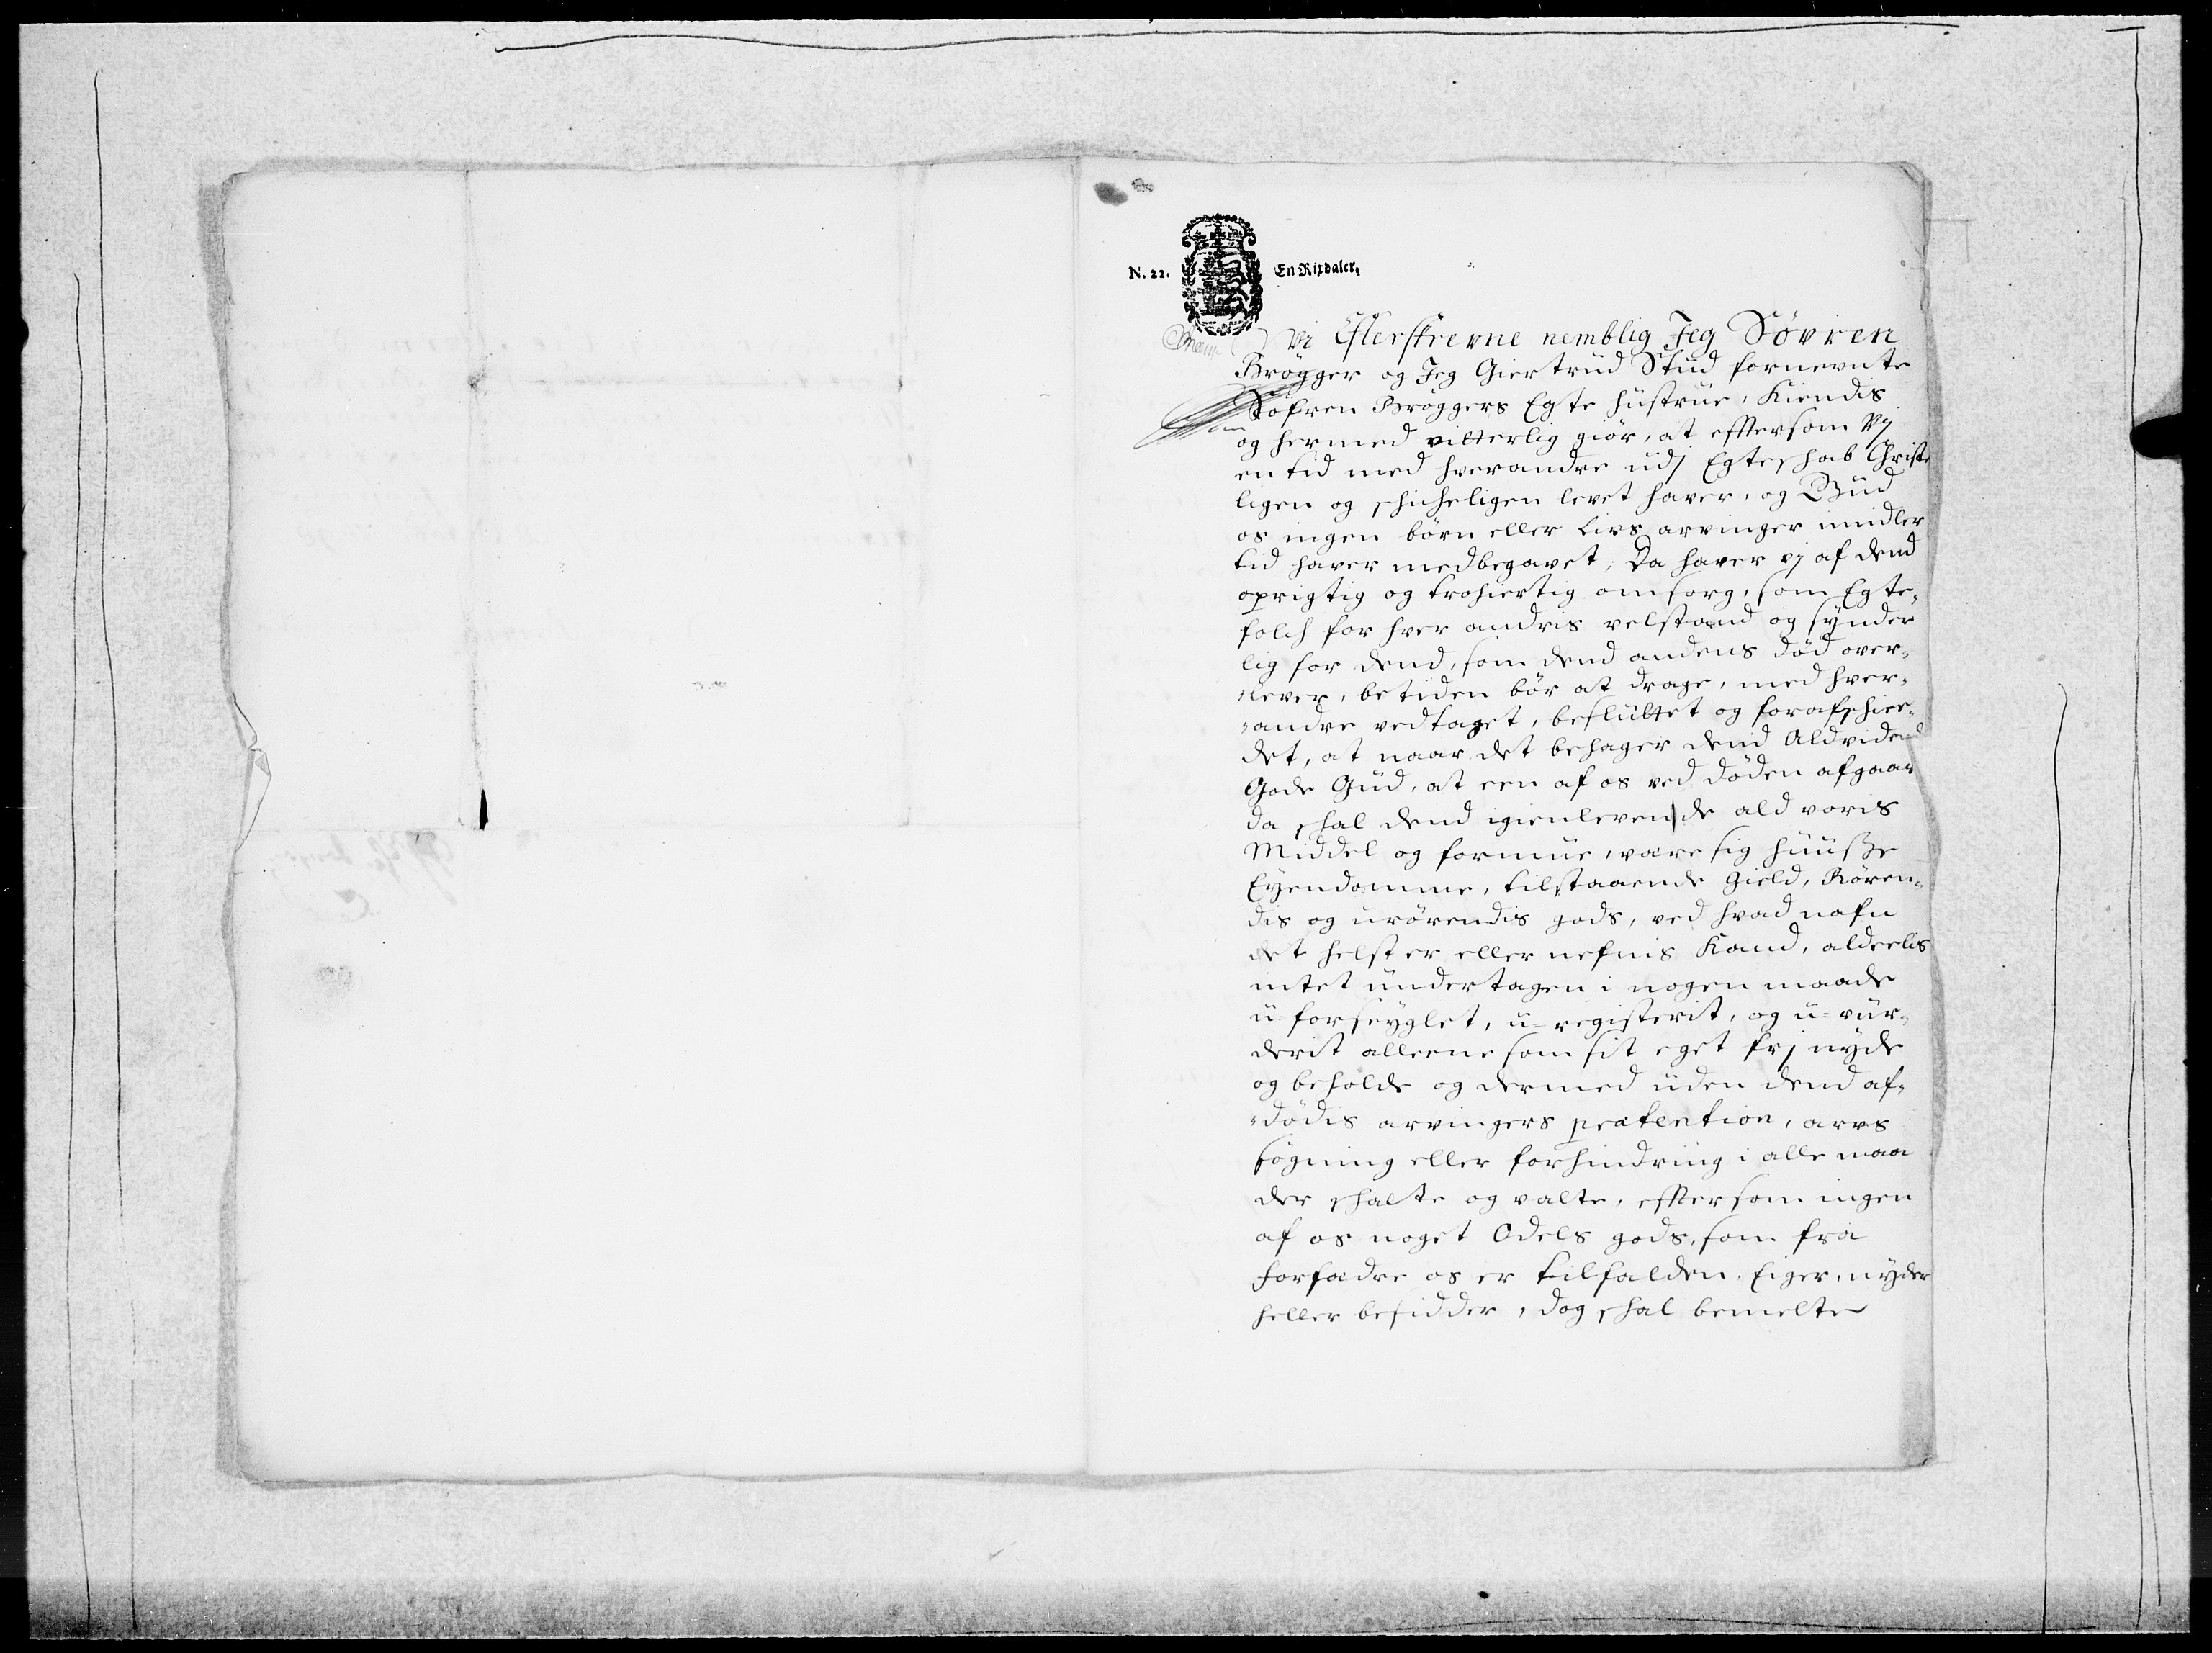 N. 22. En Rixdaler.
Vi Efterskrevne nemblig Jeg Søvren
Brøgger og Jeg Giertrud Stud fornevnte
Søfren Brøggers Egte hustrue, Kiendis
og hermed vitterlig giør, at efftersom Vj
en tid med hverandre udj Egteschab Christe
ligen og schicheligen levet haver, og Gud
os ingen børn eller Livs arvinger imidler
tid haver medbegavet, Da haver vj af dend
oprigtig og trohiertig omsorg, som Egte-
folch for hver andris velstand og synder
lig for dend, som dend andens død over-
lever, betiden bør at drage, med hver-
andre vedtaget, besluttet og forafschie-
det, at naar det behager dend Aldvidend
Gode Gud, at een af os ved døden afgaar
da schal dend igienlevende ald voris
Middel og formue, være sig huuße
Eyendomme, tilstaaende gield, Røren-
dis og urørendis gods, ved hvad nafn
det helst er eller nefnis Kand, alderlis
intet undertagen i nogen maade
u-forseyglet, u-registerit, og u-vur-
derit alleene som sit eget frj nyde
og beholde og dermed uden dend af-
dødis arvingers prætention, arvs
søgning eller forhindring i alle maa
der schalte og valte, efftersom ingen
af os noget Odels gods, som fra
forfædre os er tilfalden, Eiger, nyder
heller besidder, dog schal bemelte